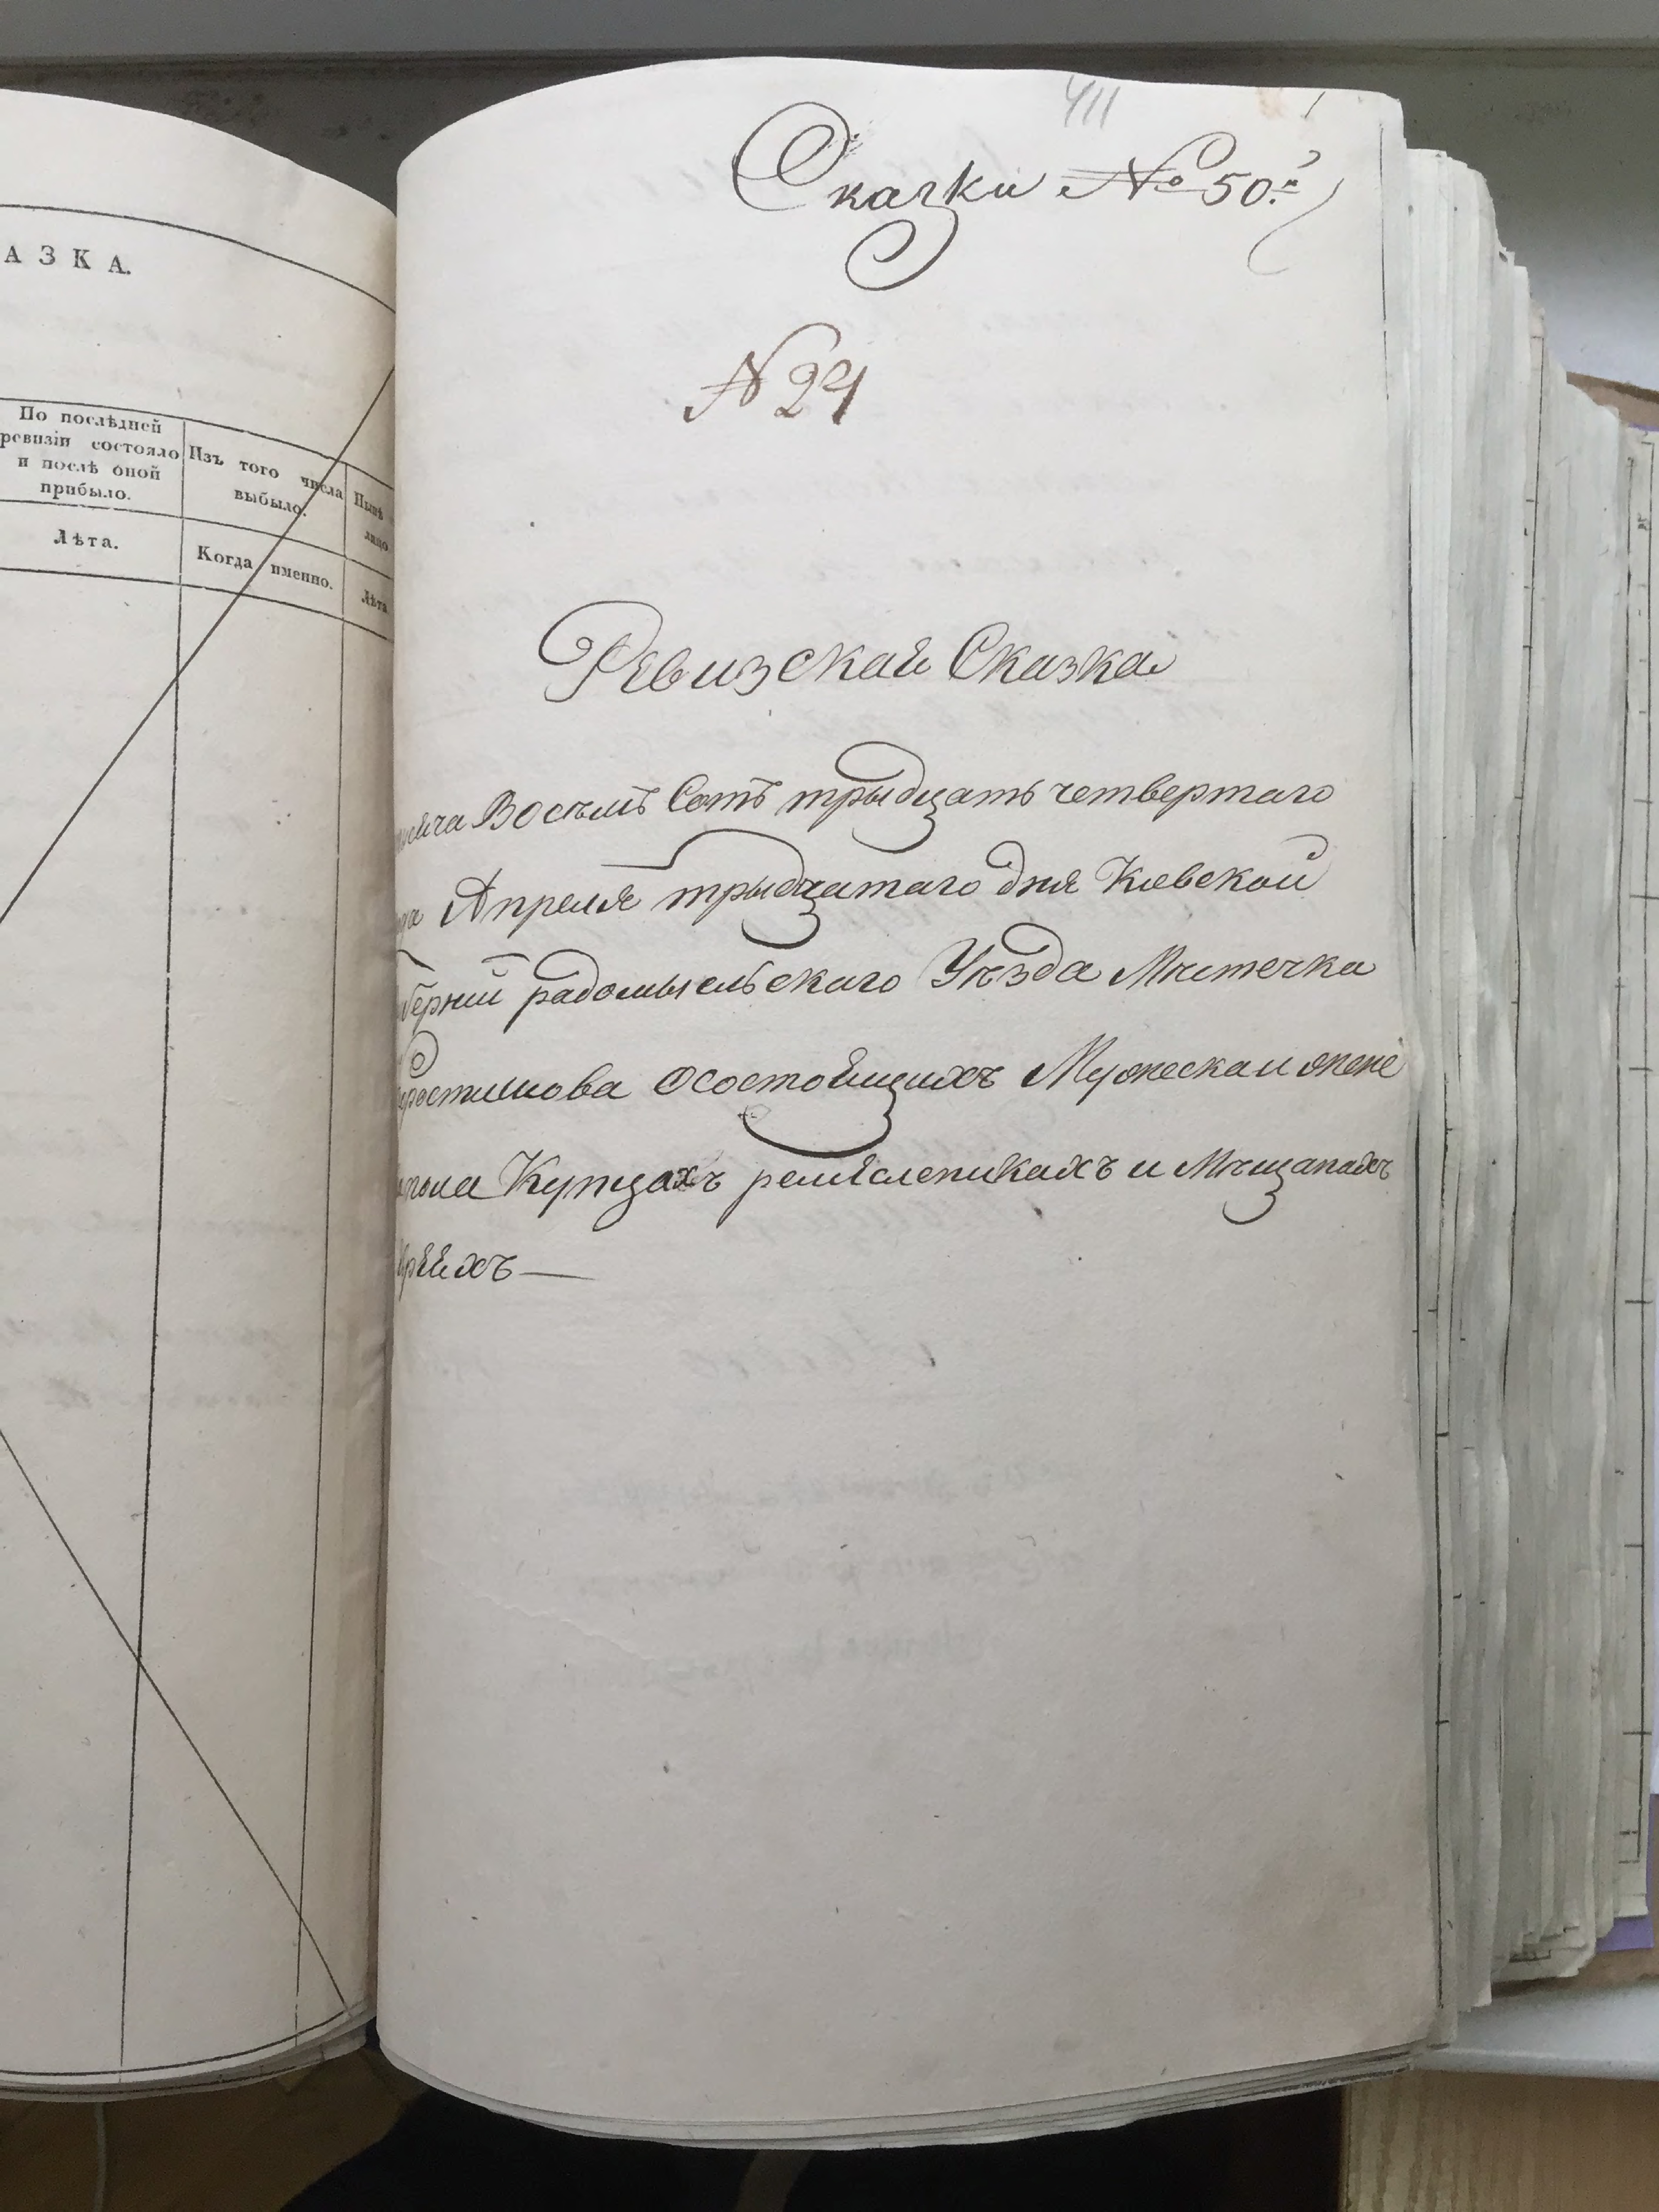 АЗКА.
По послѣдней
ревизіи состояло
и послѣ оной
прибыло.
Изъ того числа
выбыло.
Лѣта.
Когда именно.
Лѣта
411
Сказки № 50.й
N 24
Ревизская Сказка
Восемь Сотъ трыдцать четвертаго
Апреля трыдцатаго дня Киевской
берніи радомысльскаго Уѣзда Мѣстечка
осостоящихъ Мужеска и жене
пола Купцахъ ремяслепикахъ и Мѣщанахъ
вреяхъ —